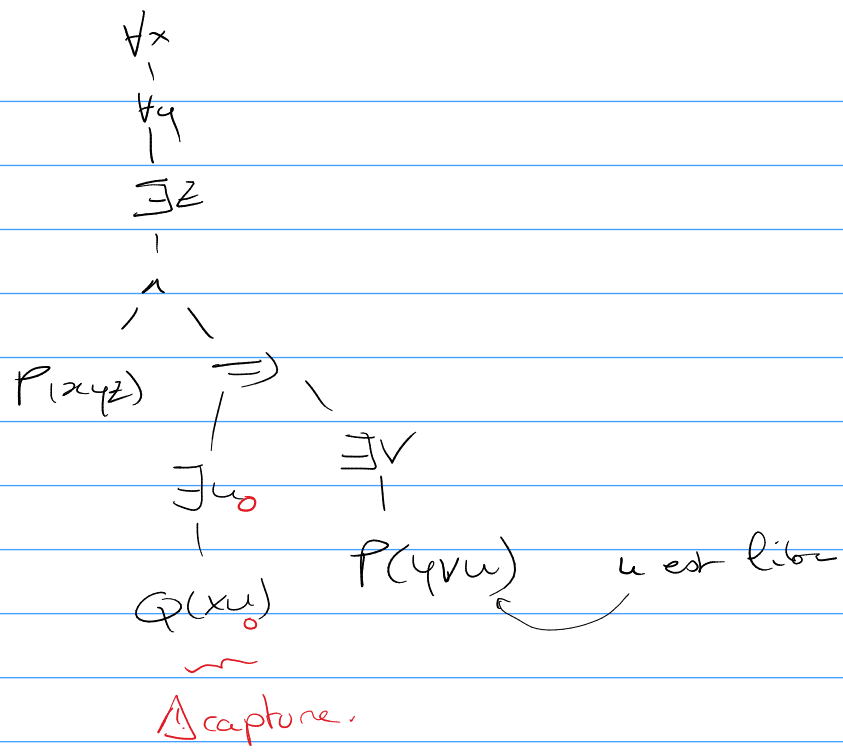 ∀x
∀y
∃z
∧
P(xyz) ⇒
∃u₀ ∃v
Q(xu₀) P(yvu) u est libre
⚠ capture.